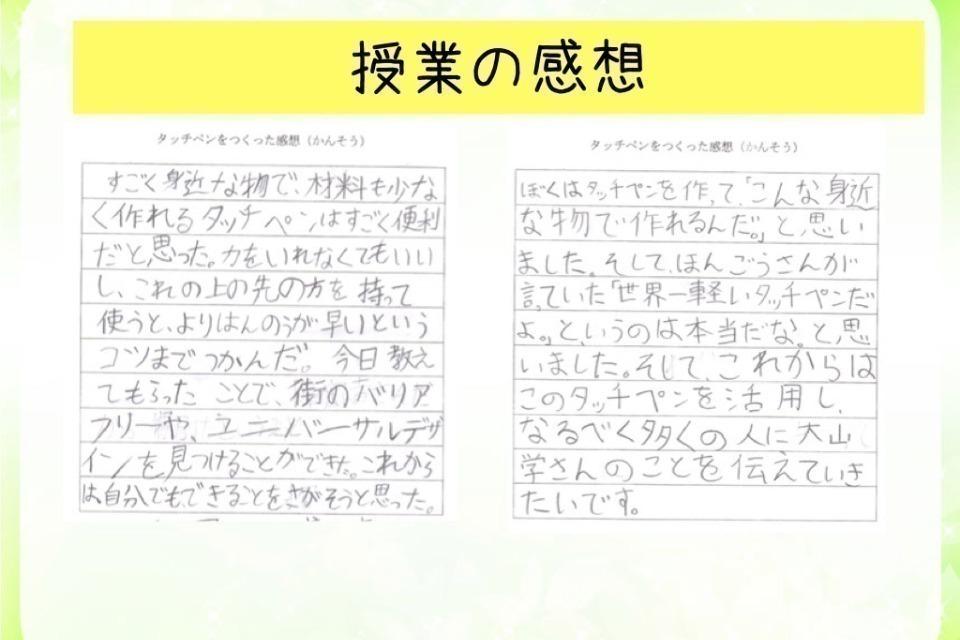 授業の感想
タッチペンをつくった感想（かんそう）
すごく身近な物で、材料も少な
く作れるタッチペンはすごく便利
だと思った。力をいれなくてもいい
し、これの上の先の方を持って
使うと、よりはんのうが早いという
コツまでつかんだ。今日教え
てもらったことで、街のバリア
フリーや、ユニバーサルデザ
インを見つけることができた。これから
は自分でもできることをさがそうと思った。
タッチペンをつくった感想（かんそう）
ぼくはタッチペンを作って、「こんな身近
な物で作れるんだ。」と思い
ました。そして、ほんごうさんが
言っていた「世界一軽いタッチペンだ
よ。」というのは本当だな。と思
いました。そして、これからは
このタッチペンを活用し、
なるべく多くの人に大山
学さんのことを伝えていき
たいです。